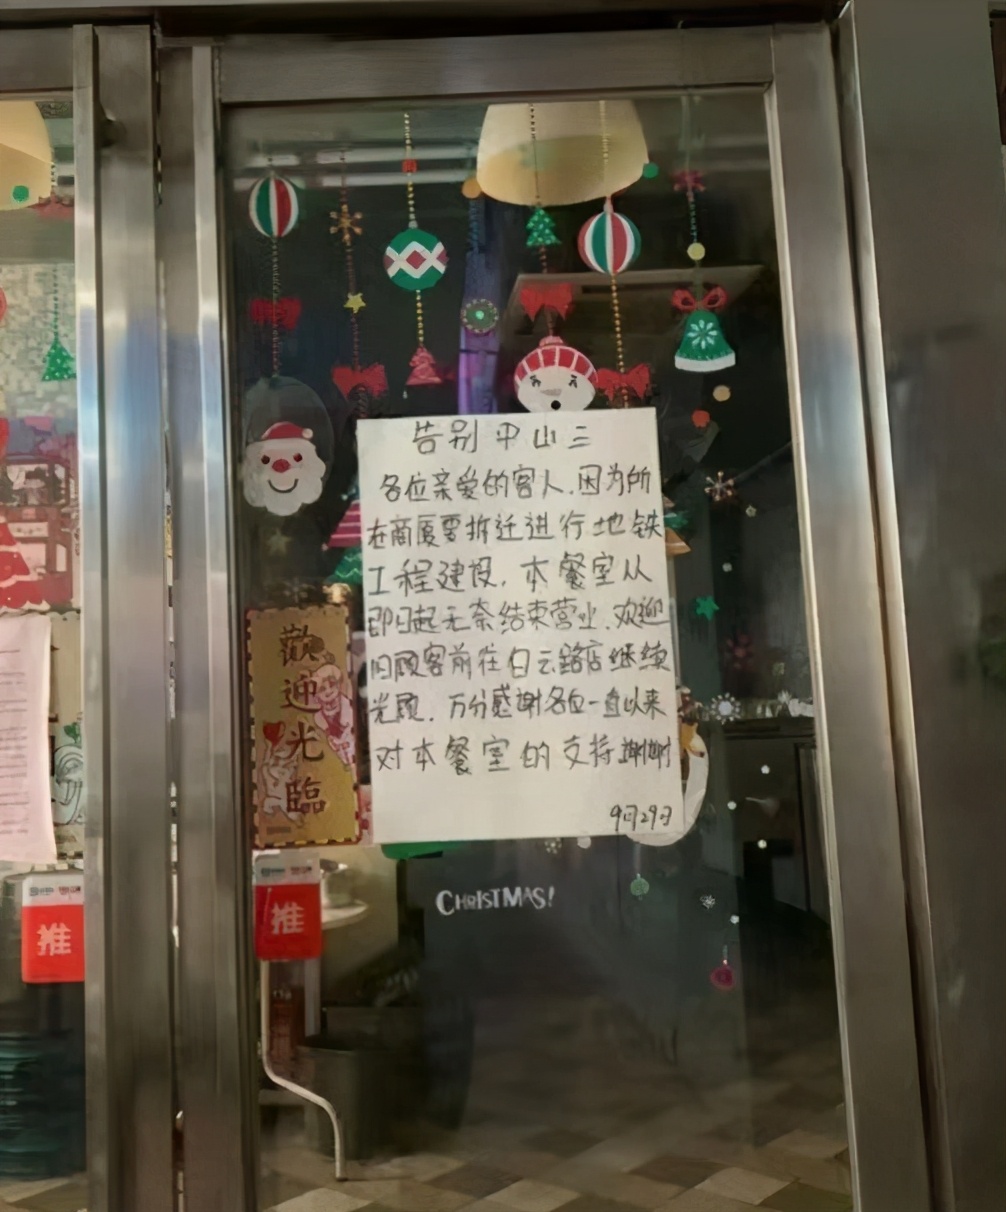 告别中山三
各位亲爱的客人.因为所
在商厦要拆迁进行地铁
工程建设.本餐室从
即日起无奈结束营业.欢迎
旧顾客前往白云路店继续
光顾.万分感谢各位一直以来
对本餐室的支持谢谢
9月29日
歡迎光臨
推
推
CHRISTMAS!